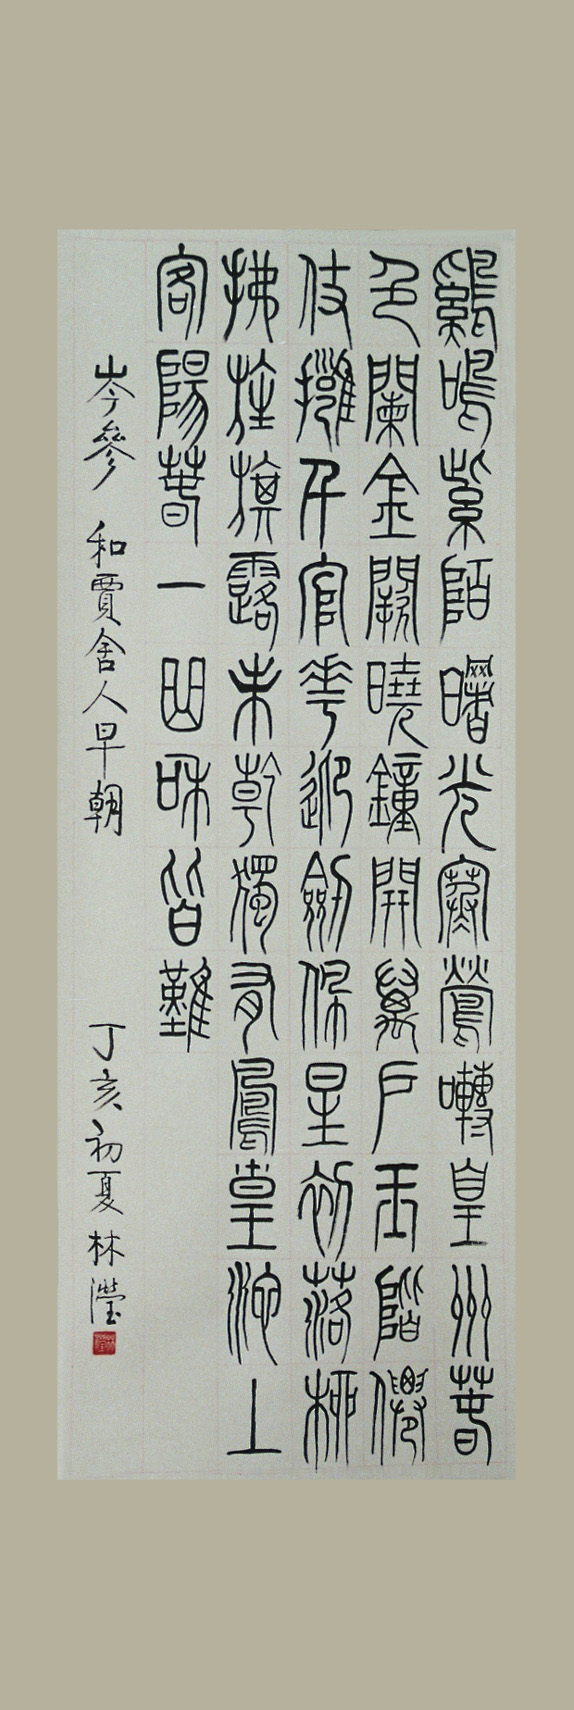 雞鳴紫陌曙光寒鶯囀皇州春
色闌金闕曉鐘開萬戶玉階僊
仗擁千官花迎劍佩星初落柳
拂旌旗露未乾獨有鳳皇池上
客陽春一曲和皆難
岑參 和賈舍人早朝 丁亥初夏 林瀅